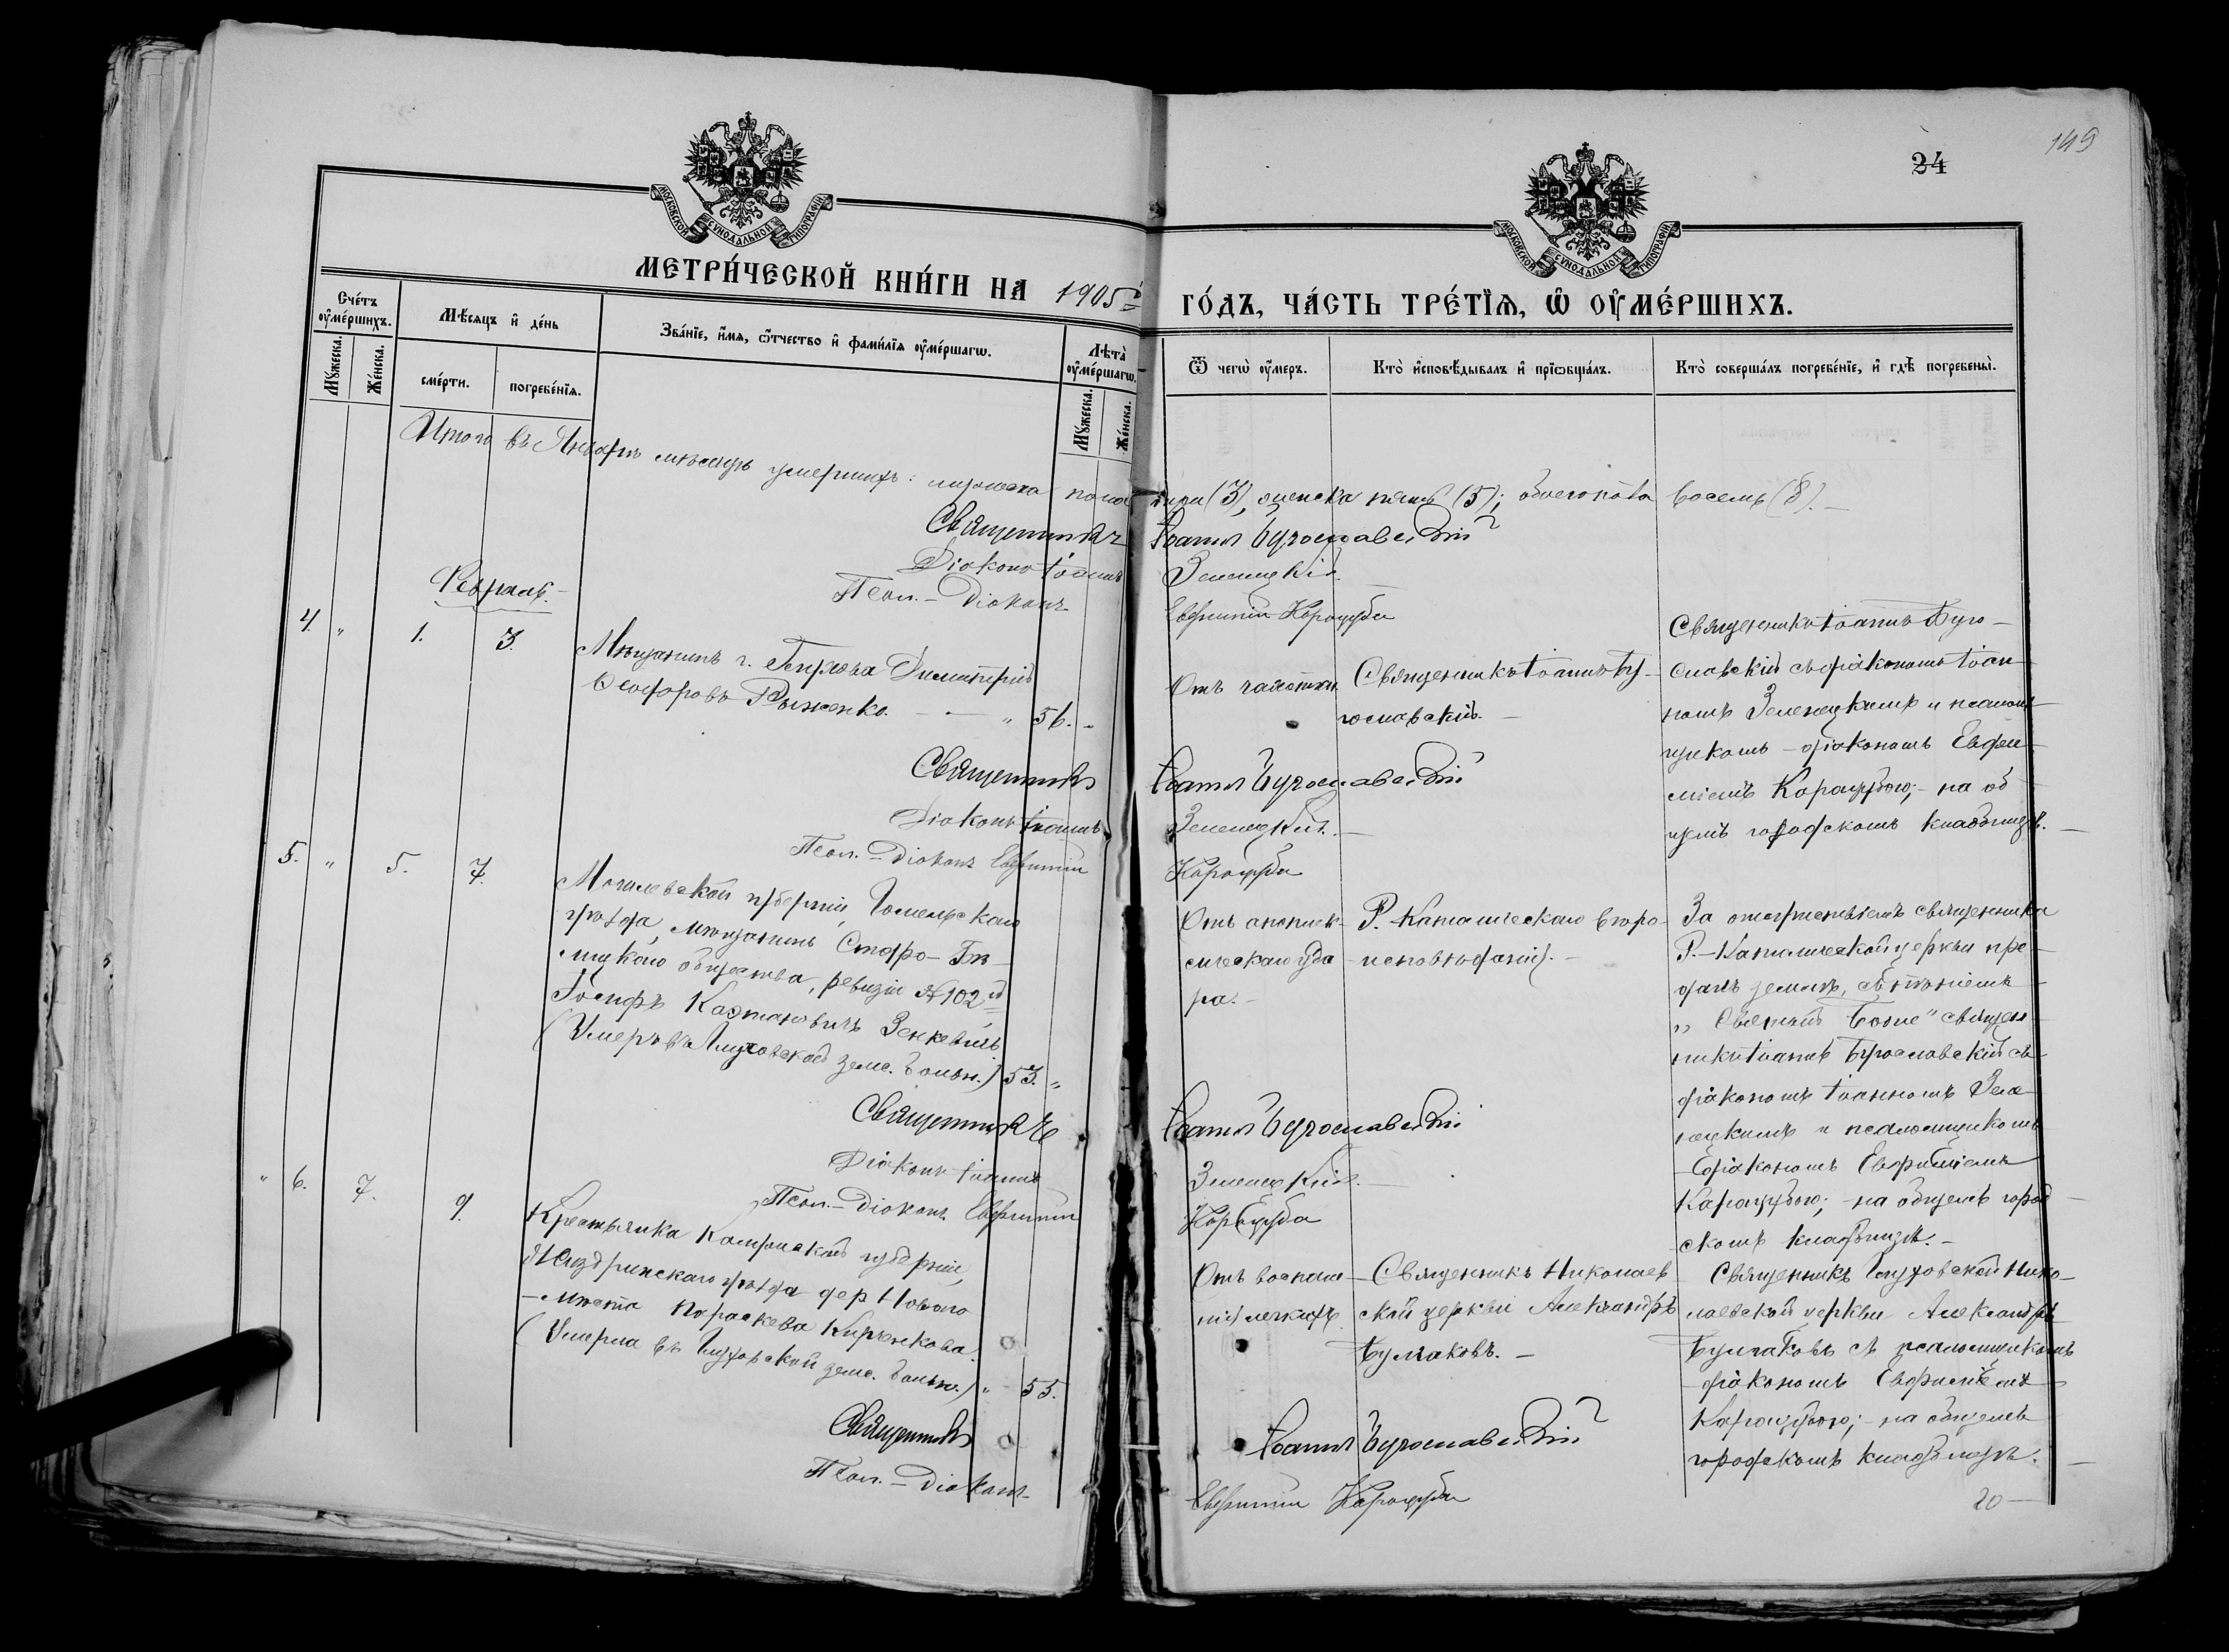 149
24
МОСКОВСКОЙ СѴНОДАЛЬНОЙ ТИПОГРАФІИ
МОСКОВСКОЙ СѴНОДАЛЬНОЙ ТИПОГРАФІИ
МЕТРИ́ЧЕСКОЙ КНИ́ГИ НА 1905й ГО́ДЪ, ЧА́СТЬ ТРЕ́ТІѦ, Ѡ ОУМЕ́РШИХЪ.
Сче́тъ оуме́ршихъ.
Мꙋжеска.
Же́нска.
Мѣсяцъ и де́нь
сме́рти.
погребе́нїѧ.
Зва́нїе, и́мѧ, ѻтчество и фами́лїѧ оуме́ршагѡ.
Лѣта̀ оуме́ршагѡ.
Мꙋжеска.
Же́нска.
Ѿ чегѡ̀ оумеръ.
Кто̀ исповѣдывалъ и прїѡбща́лъ.
Кто̀ соверша́лъ погребе́нїе, и гдѣ̀ погребены̀.
Итого въ Январѣ мѣсяцѣ умершихъ: мужеска пола три (3), женска пять (5); обоего пола восемь (8).—
Священникъ Іоаннъ Бугославскій
Діаконъ Іоаннъ Зеленецкій.
Псал.-Діаконъ Евфимій Карощуба
Февраль.
4. " 1. 3.
Мѣщанинъ г. Димитрій
Ѳеодоровъ Рыженко. — — " 56. "
Отъ чахотки
Священникъ Іоаннъ Бу-
гославскій. —
Священникъ Іоаннъ Буго-
славскій съ діакономъ Іоан-
номъ Зеленецкимъ и псалом-
щикомъ-діакономъ Евфи-
міемъ Карощубою; - на об-
щемъ городскомъ кладбищѣ.
Священникъ Іоаннъ Бугославскій
Діаконъ Іоаннъ Зеленецкій.
Псал.-Діаконъ Евфимій Карощуба
5. " 5. 7.
Могилевской губерніи, Гомельскаго
уѣзда, мѣщанинъ Старо-Бѣ-
лицкаго общества, ревизіи №102й
Іосифъ Зенкевичъ
(Умеръ въ Глуховской земс. больн.) 53. "
Отъ апоплек-
сическаго уда-
ра.-
Р.-Католическаго вѣро-
исповѣданія.-
За отсутствіемъ священника
Р.-Католической церкви пре-
данъ землѣ, съ пѣніемъ
„Святый Боже" священ-
никъ Іоаннъ Бугославскій съ
діакономъ Іоанномъ Зеле-
нецкимъ и псаломщикомъ
діакономъ Евфиміемъ
Карощубою; - на общемъ город-
скомъ кладбищѣ.-
Священникъ Іоаннъ Бугославскій
Діаконъ Іоаннъ Зеленецкій.
Псал.-Діаконъ Евфимій Карощуба
" 6. 7. 9.
Крестьянка Калужской губерніи,
Жиздринскаго уѣзда дер. Новаго
-мѣста Параскева
(Умерла въ Глуховской земс. больн.) " 55.
Отъ воспале-
нія легкихъ.
Священникъ Николаев-
ской церкви Александръ
Булгаковъ.-
Священникъ Глуховской Нико-
лаевской церкви Александръ
Булгаковъ съ псаломщикомъ
діакономъ Евфиміемъ
Карощубою; - на общемъ
городскомъ кладбищѣ.
Священникъ Іоаннъ Бугославскій
Псал.-Діаконъ Евфимій Карощуба
20 —